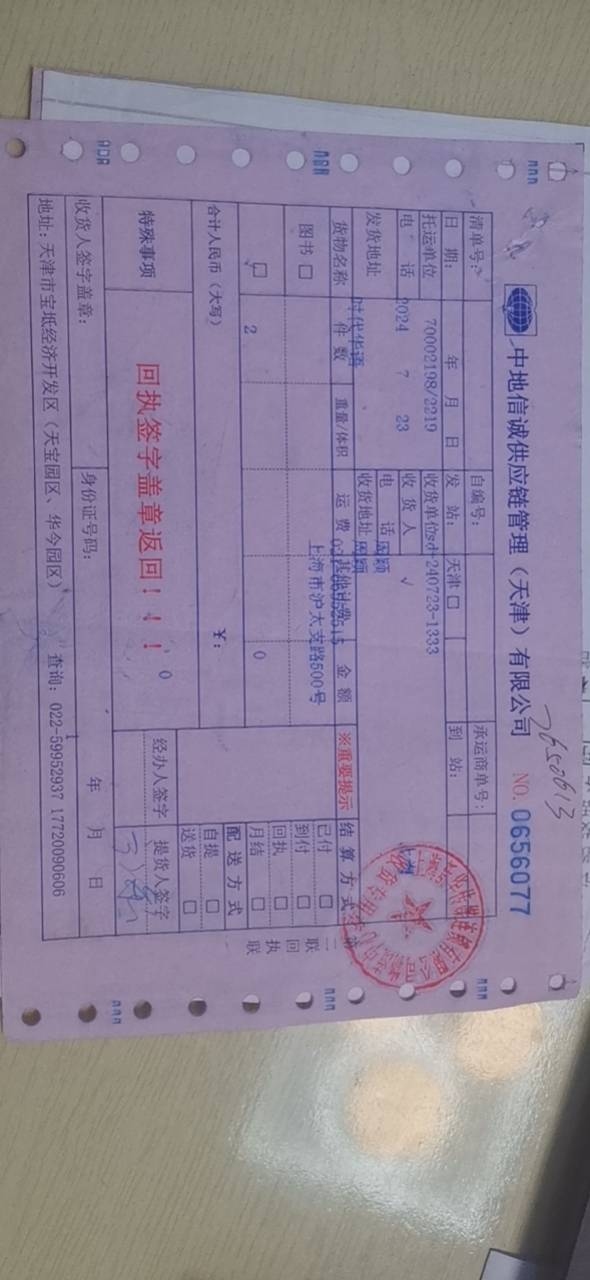 中地信诚供应链管理（天津）有限公司
NO. 0656077
2650613
清单号：
自编号：
承运商单号：
日 期：
年 月 日
发 站：
天津 □
到 站：
托运单位
70002198/2219
收货单位
240723-1333
电 话
2024 7 23
收 货 人
√
发货地址
时代华语
电 话
周颖
收货地址
周颖
上海市沪太支路500号
货物名称
件 数
重量/体积
运 费
其他计费
金 额
※重要提示
结 算 方 式
图书 □
已付 □
到付 □
□
2
0
回执 □
月结 □
合计人民币（大写）
¥：
配 送 方 式
自提 □
送货 □
特殊事项
回执签字盖章返回！！！
0
经办人签字
提货人签字
收货人签字盖章：
身份证号码：
年 月 日
地址：天津市宝坻经济开发区（天宝园区、华今园区）
查询：022-59952937 17720090606
二联回执联